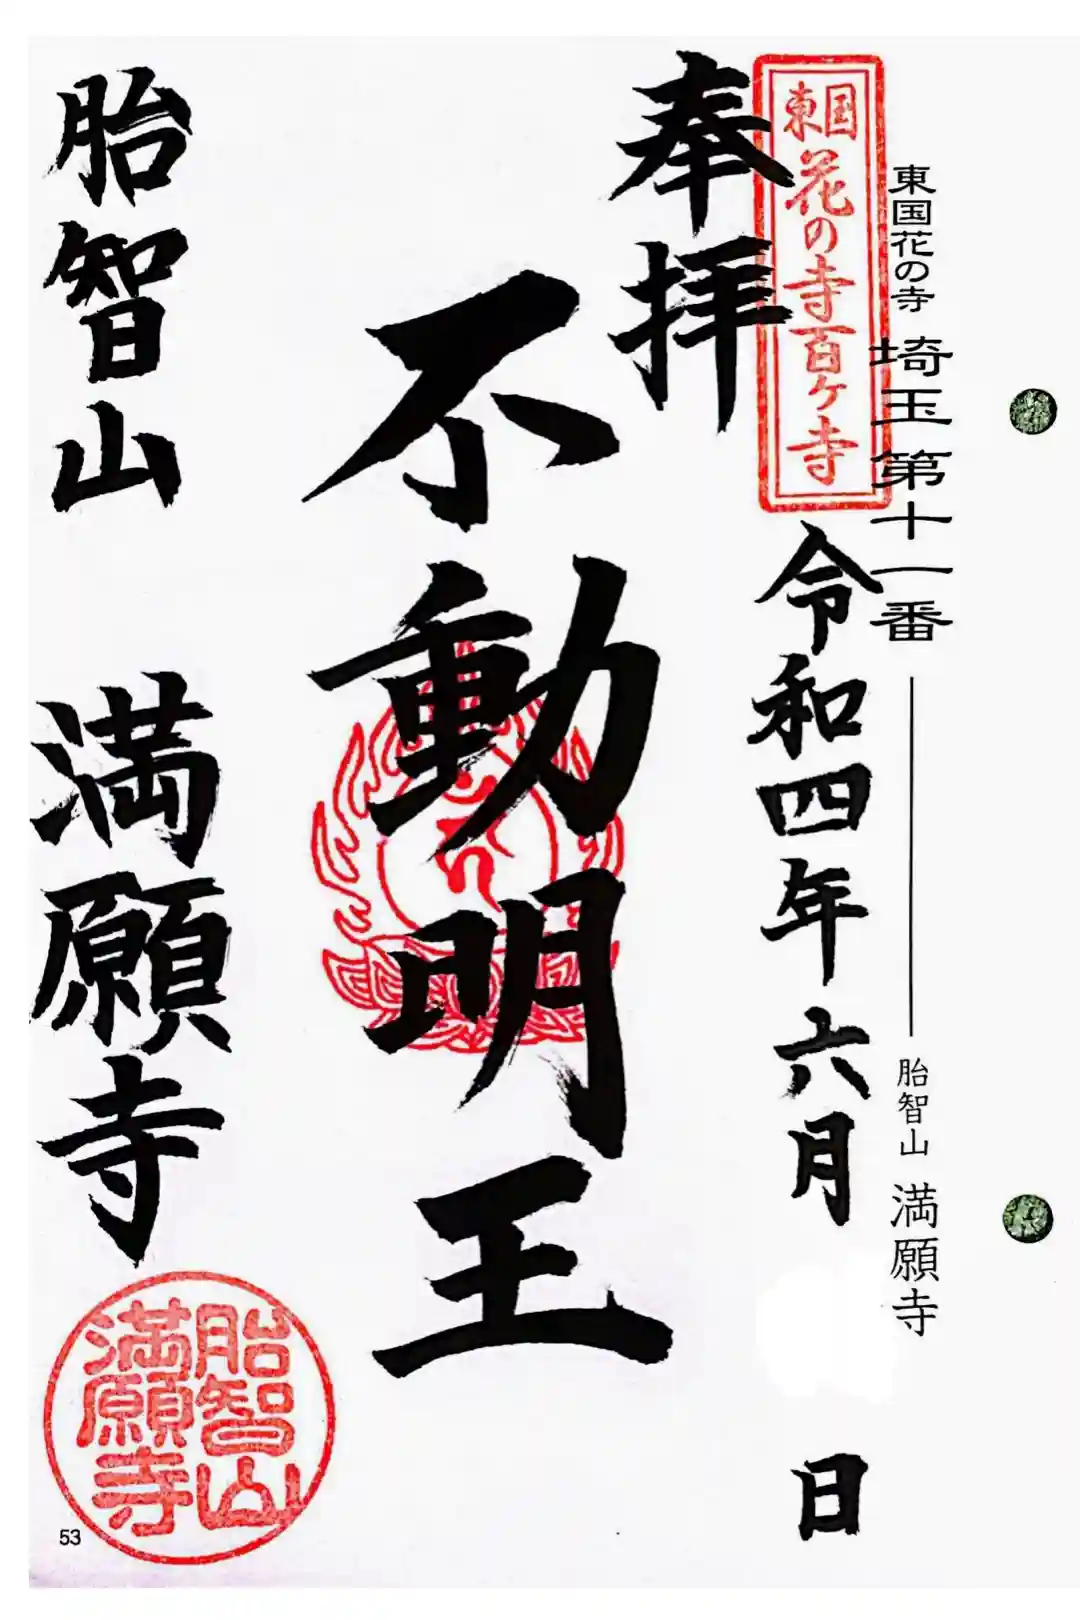 東国花の寺 埼玉第十一番 胎智山 満願寺
東国花の寺百ケ寺
奉拝
令和四年六月 日
不動明王
胎智山 満願寺
胎智山
満願寺
53